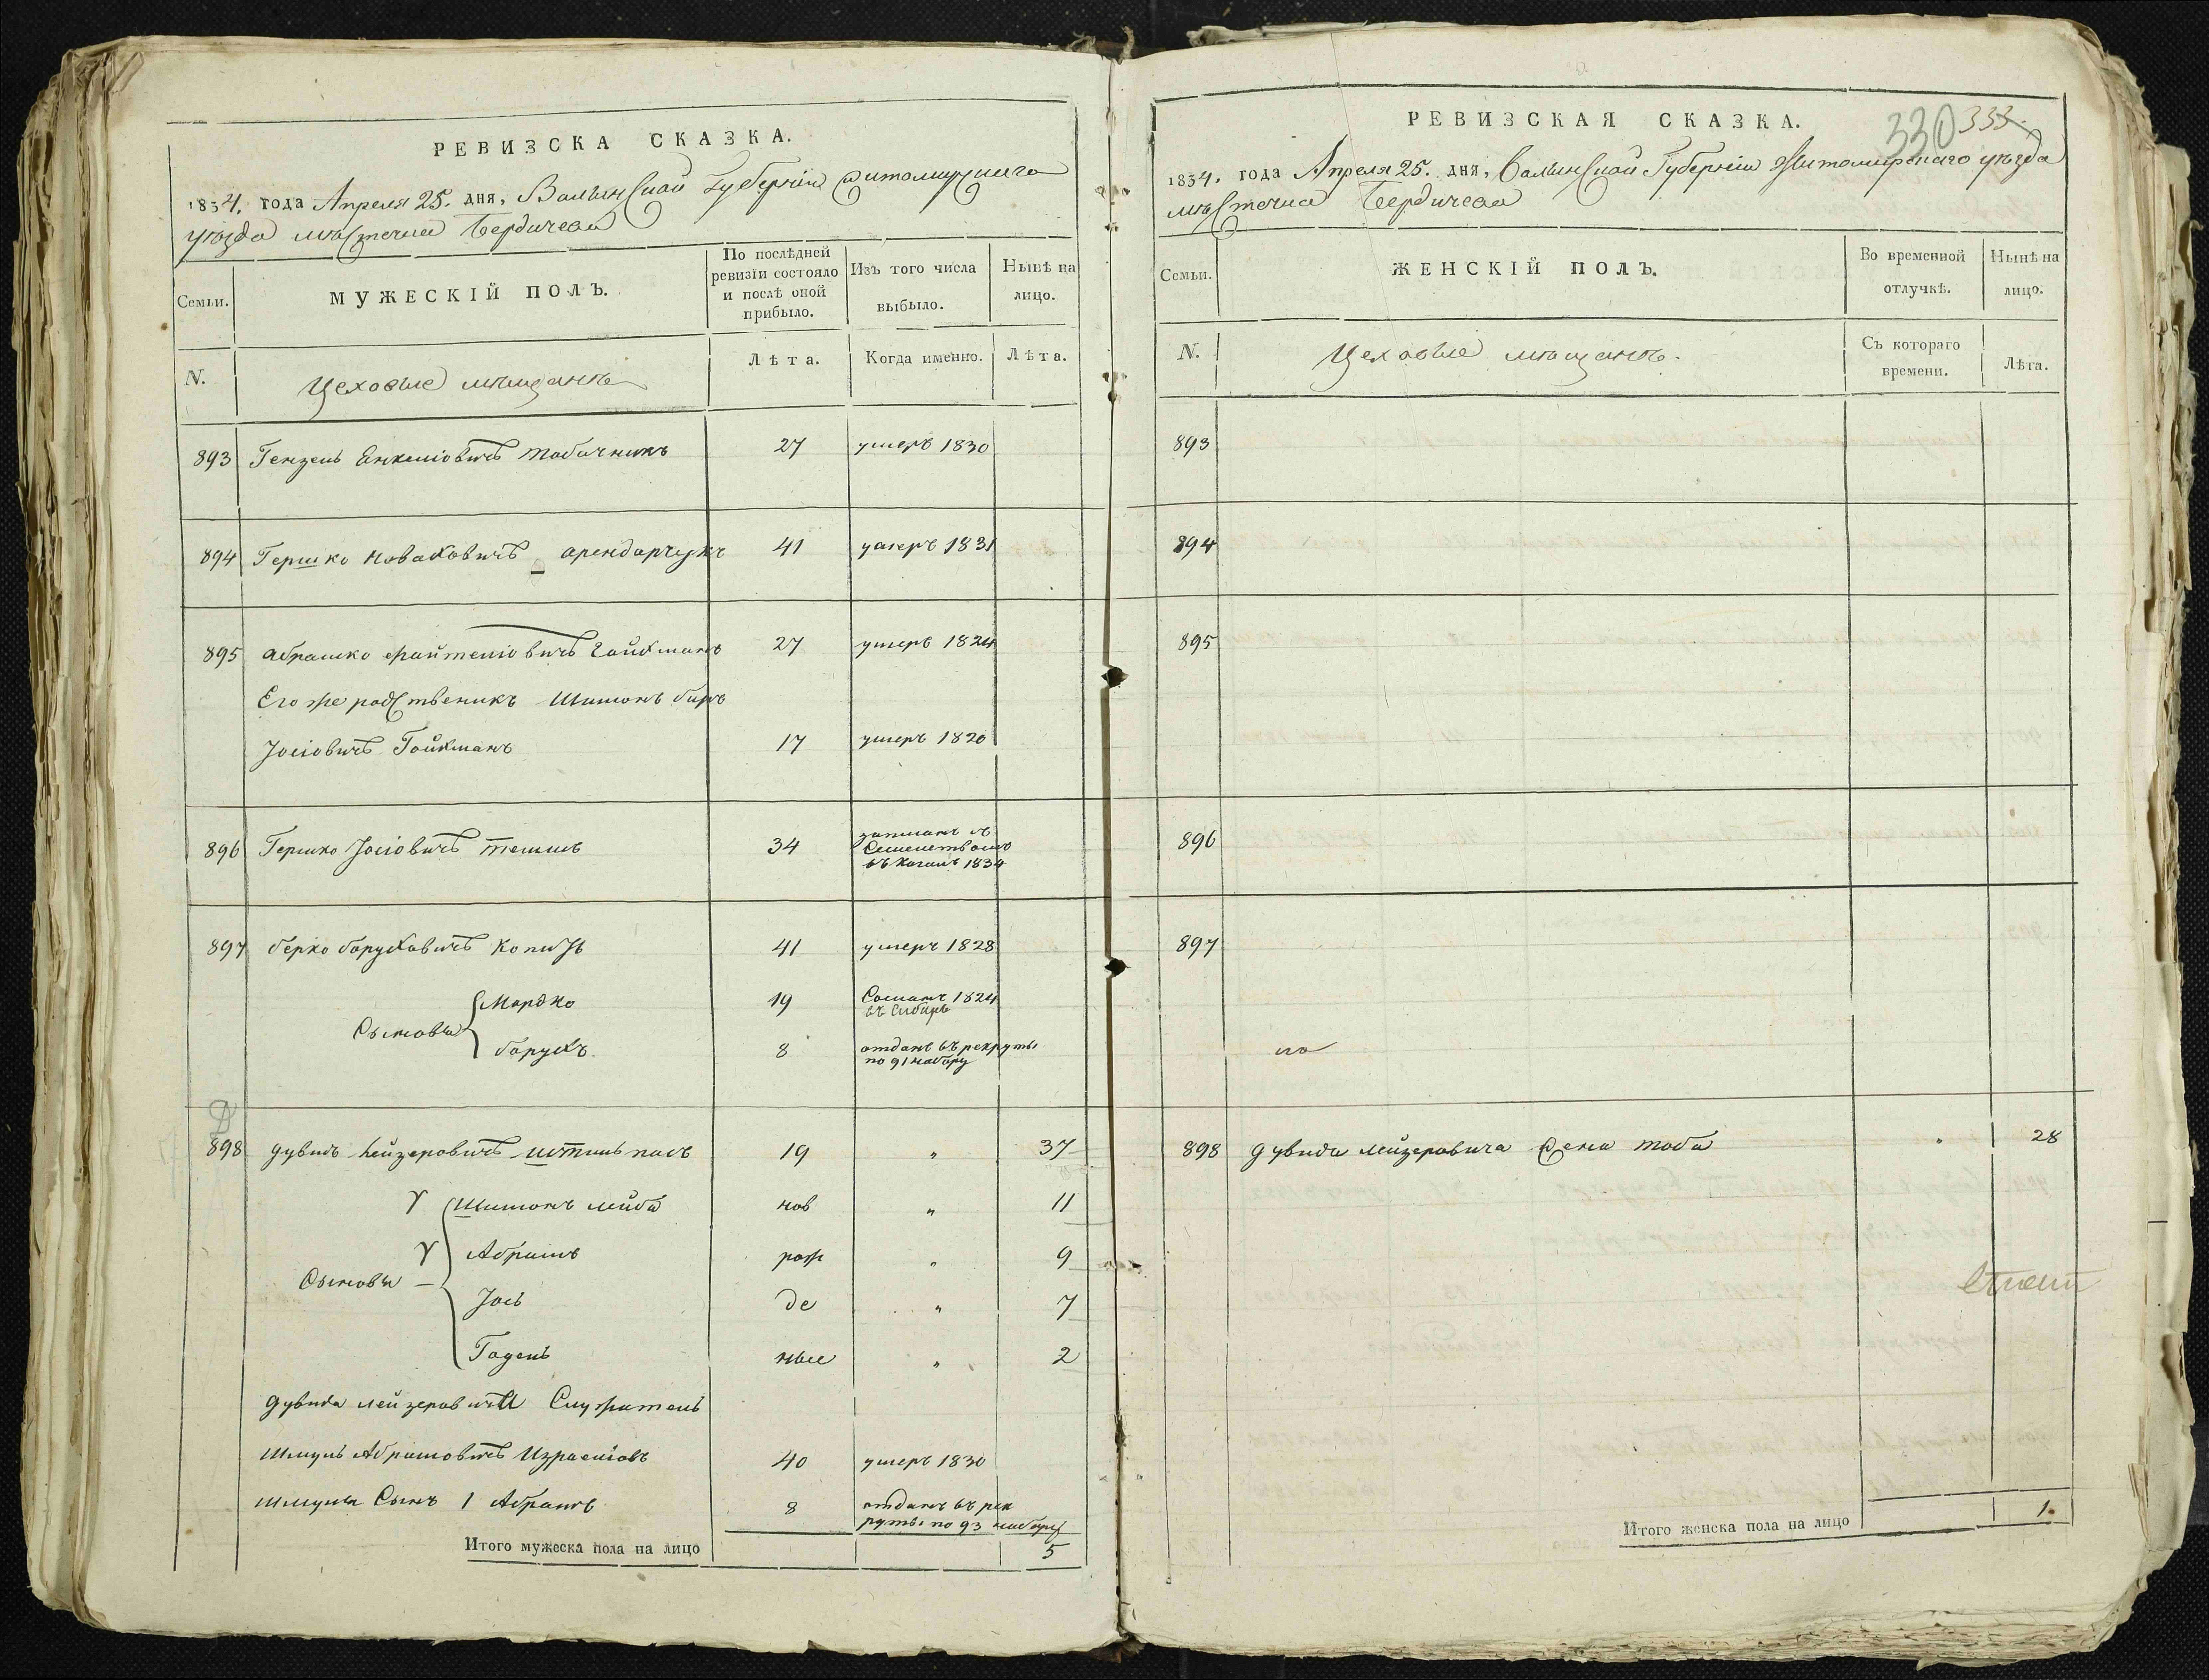 РЕВИЗСКА СКАЗКА.
1834. года Апреля 25. дня, Волынской Губерніи Житомирскаго
уѣзда мѣстечка Бердичева
Семьи.
МУЖЕСКІЙ ПОЛЪ.
По послѣдней ревизіи состояло и послѣ оной прибыло.
Изъ того числа выбыло.
Нынѣ на лицо.
N.
Цеховые мѣщанѣ
Лѣта.
Когда именно.
Лѣта.
893 Гензель Янкеліовичъ Табачникъ 27 умеръ 1830
894 Гершко Новаховичъ арендарчукъ 41 умеръ 1831
895 Абрашко Файтеліовичъ Гойхманъ 27 умеръ 1824
Его же родственикъ Шимонъ биръ
Іосіовичъ Гойхманъ 17 умеръ 1820
896 Гершко Іосіовичъ 34 записанъ съ
Семействомъ
въ Кагалъ 1834
897 берко боруховичъ 41 умеръ 1828
Мордко 19 Сосланъ 1824
въ Сибирь
Сыновья
борухъ 8 отданъ въ рекруты
по 91 набору
898 дувидъ лейзеровичъ 19 " 37
Шимонъ лейба нов " 11
Абрамъ рож " 9
Сыновья
Іось де " 7
Гадель ные " 2
дувида лейзеровича Служитель
Шмуль Абрамовичъ Израеліовъ 40 умеръ 1830
Шмуля Сынъ 1 Абрамъ 8 отданъ въ рек
руты по 93 набору
Итого мужеска пола на лицо 5
РЕВИЗСКАЯ СКАЗКА.
330 333
1834. года Апреля 25. дня, Волынской Губерніи Житомирскаго уѣзда
мѣстечка Бердичева
Семьи.
ЖЕНСКІЙ ПОЛЪ.
Во временной отлучкѣ.
Нынѣ на лицо.
N.
Цеховые мѣщанѣ.
Съ котораго времени.
Лѣта.
893
894
895
896
897
898 дувида лейзеровича Жена Тоба " 28
Итого женска пола на лицо 1.